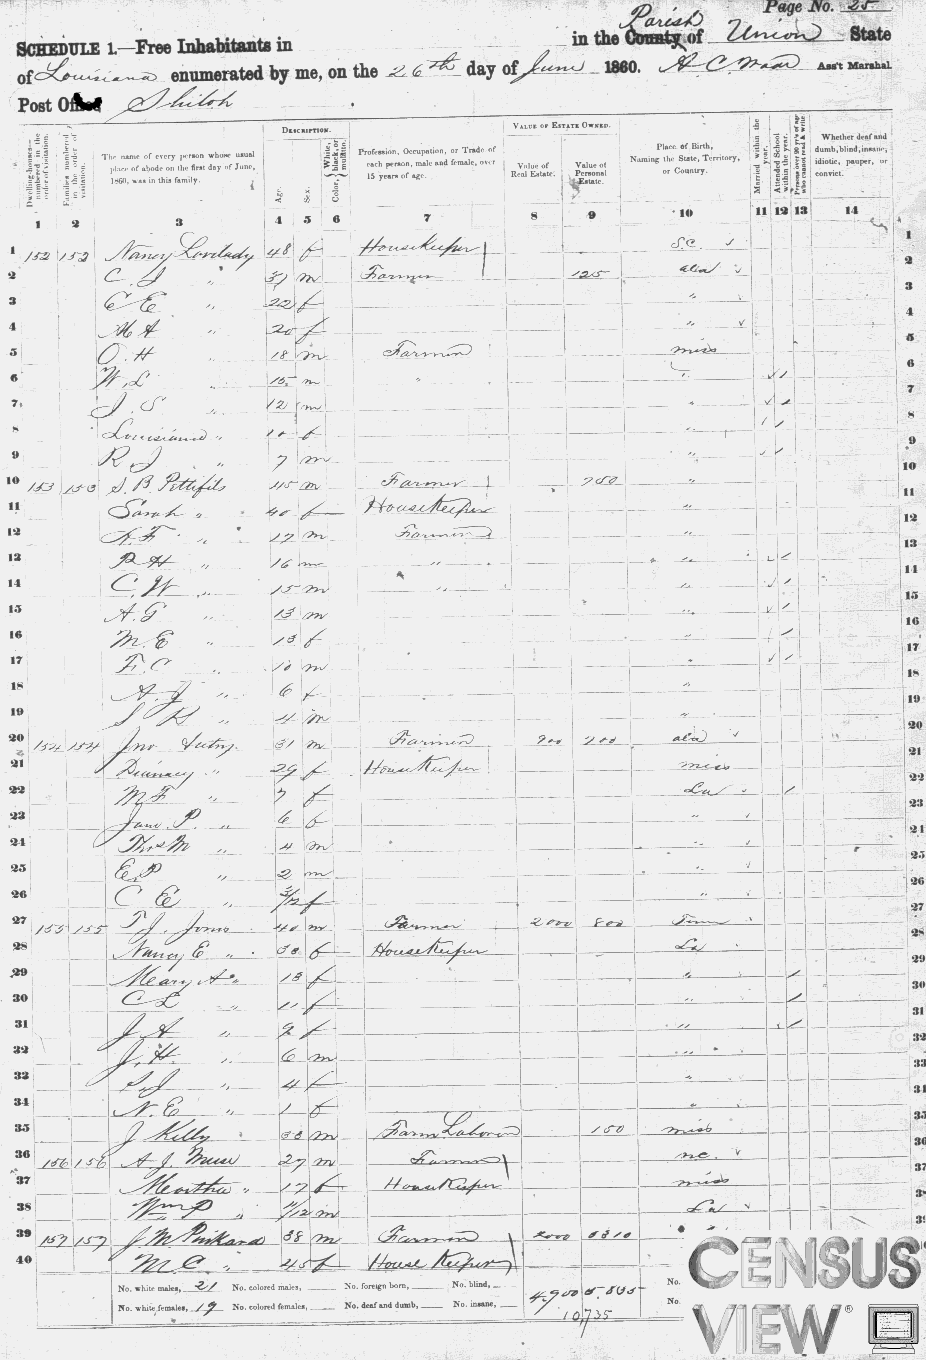 Page No. 25
SCHEDULE 1.—Free Inhabitants in in the County Parish of Union State
of Louisiana enumerated by me, on the 26th day of June 1860. A C Ass't Marshal
Post Office Shiloh
DESCRIPTION. VALUE OF ESTATE OWNED.
Dwelling-houses—numbered in the order of visitation. Families numbered in the order of visitation. The name of every person whose usual place of abode on the first day of June, 1860, was in this family. Age. Sex. Color, {White, black, or mulatto. Profession, Occupation, or Trade of each person, male and female, over 15 years of age. Value of Real Estate. Value of Personal Estate. Place of Birth, Naming the State, Territory, or Country. Married within the year. Attended School within the year. Persons over 20 y'rs of age who cannot read & write. Whether deaf and dumb, blind, insane, idiotic, pauper, or convict.
1 2 3 4 5 6 7 8 9 10 11 12 13 14
1 152 152 Nancy Lovelady 48 f Housekeeper S.C. 1
2 C. J " 37 m Farmer 125 ala 2
3 C E " 22 f " 3
4 M A " 20 f " 4
5 O. H " 18 m Farmer miss 5
6 W. L " 15 m " " 6
7 J. S " 12 m " 7
8 Louisiana " 10 f " 8
9 R. J " 7 m " 9
10 153 153 S. B Pettifils 45 m Farmer 750 " 10
11 Sarah " 40 f Housekeeper " 11
12 F " 17 m Farmer " 12
13 P. H " 16 m " " 13
14 C. W " 15 m " " 14
15 A. G " 13 m " 15
16 M. E " 13 f " 16
17 F. C " 10 m " 17
18 A. J " 6 f " 18
19 S K " 4 m " 19
20 154 154 Jno 31 m Farmer 900 ala 20
21 " 29 f Housekeeper miss 21
22 M. F " 7 f La 22
23 Jane P. " 6 f " 23
24 Thos M " 4 m " 24
25 E. P " 2 m " 25
26 C E " 3/12 f " 26
27 155 155 T. J. Jones 40 m Farmer 2000 800 Tenn 27
28 Nancy E " 38 f Housekeeper La 28
29 Mary A " 13 f " 29
30 C L " 11 f " 30
31 J. A " 9 f " 31
32 J. H. " 6 m " 32
33 S. J " 4 f " 33
34 N. E " 1 f " 34
35 J Killy 33 m Farm Laborer 150 miss 35
36 156 156 A. J. Muse 27 m Farmer n.c. 36
37 Martha " 17 f Housekeeper miss 37
38 Wm P " 11/12 m La 38
39 157 157 J. M. Pinkard 38 m Farmer 2000 " 39
40 M. C. " 45 f House Keeper
No. white males, 21 No. colored males, No. foreign born, No. blind, No.
No. white females, 19 No. colored females, No. deaf and dumb, No. insane, 4,900 5,835 No.
10,735
CENSUS
VIEW®